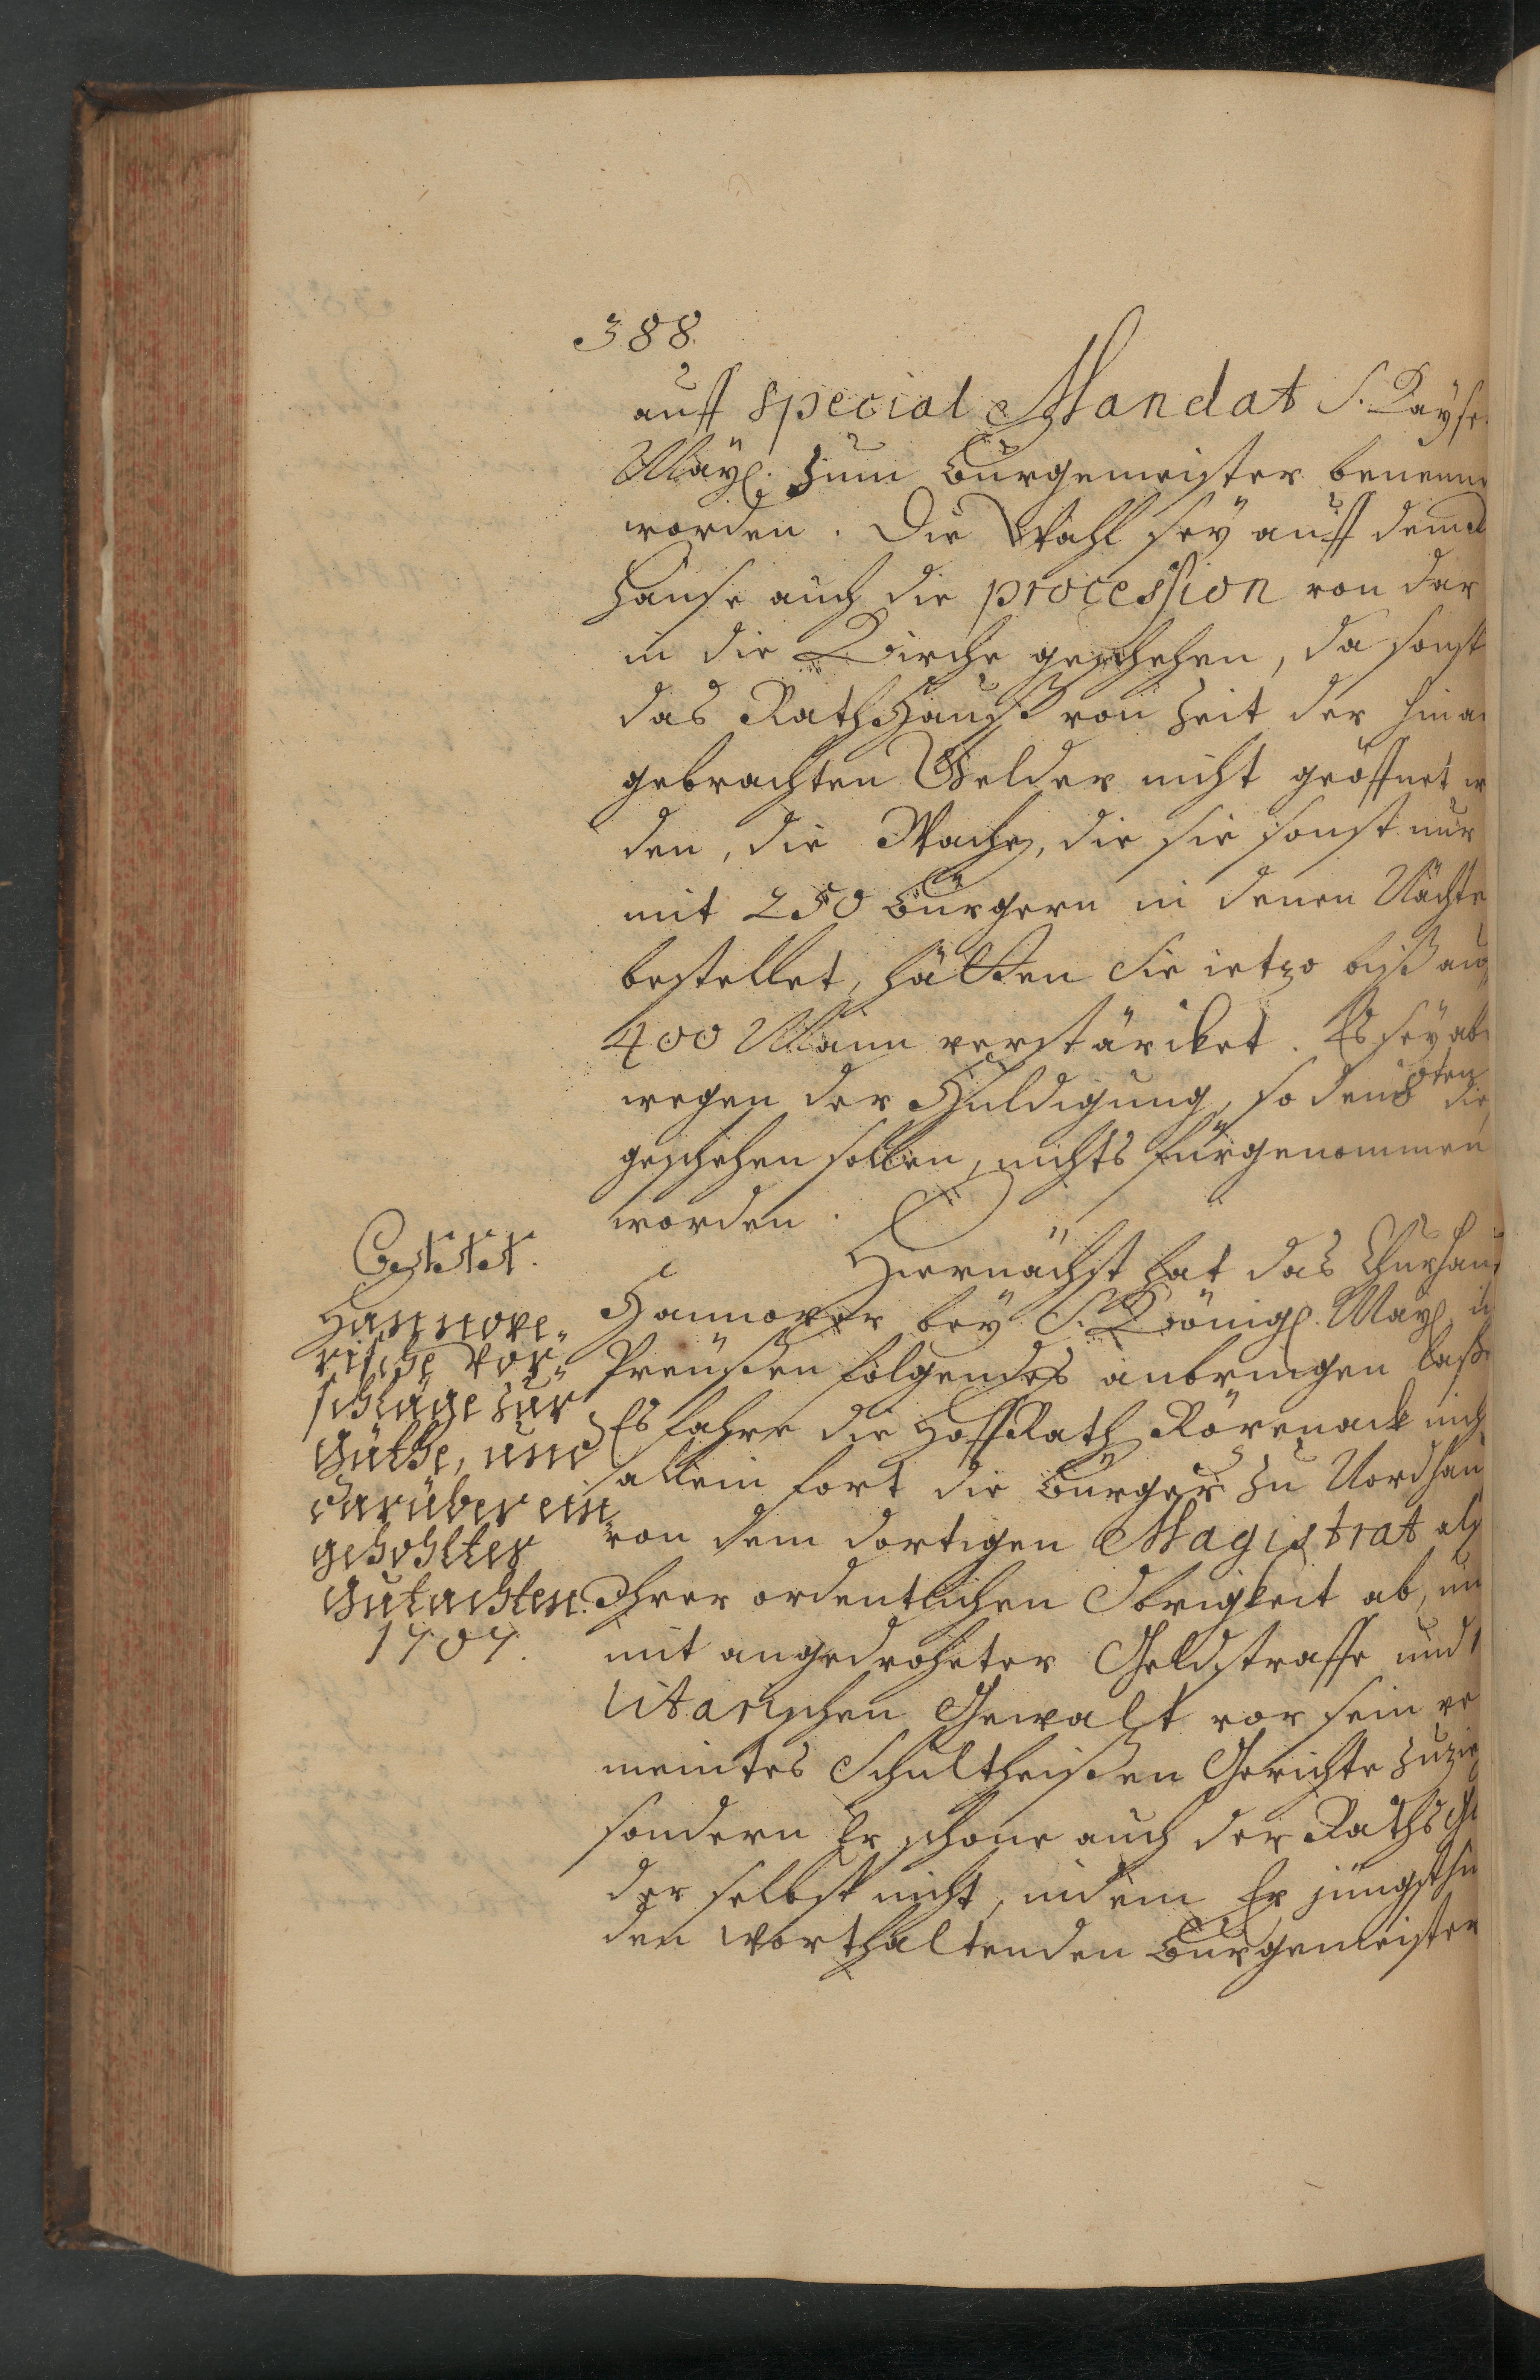 388.
auff special Mandat S. Kayse
Mayl. zum Bürgemeister benennt
worden. Die Wahl sey auff dem
Hause auch die procession von dar
in die Kirche geschehen, da sonst
das Rathhauß von Zeit der hin
gebrachten Gelder nicht geöffnet w
den, die Wache, die sie sonst nur
mit 250 Bürgern in denen Nächte
bestellet, hätten Sie ietzo biß auf
400 Mann verstärcket. Es sey ab
wegen der Huldigung, so den 8ten
geschehen sollen, nichts fürgenommen
worden.
Hiernächst hat das Churhau
Hannover bey S. Königl. Mayl. in
Preußen folgendes anbringen laße
Es fahre die Hoff Rath Rörenack nich
allein fort die Bürger zu Nordhau
von dem dortigen Magistrat als
Ihrer ordentlichen Obrigkeit ab, un
mit angedroheter Geldstraffe und
litarischen Gewalt vor sein ve
meintes Schultheißen Gerichte zuzie
sondern Er schone auch der Raths Gl
der selbst nicht, indem Er jüngsthin
den worthaltenden Bürgemeister
Hannove-
rische Vor-
schläge zur
Güthe, und
darüber ein
gehohlter
Gutachten.
1704.